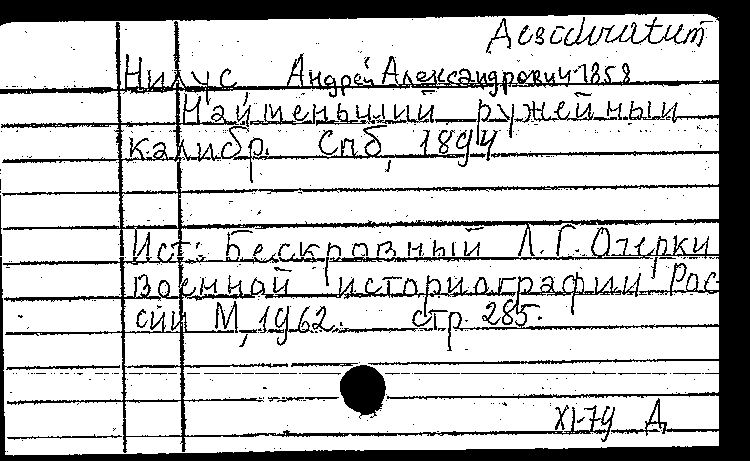 Desideratum
Нилус, Андрей Александрович 1858
Найменьший ружейный
калибр. Спб, 1894
Ист: Бескровный Л.Г. Очерки
военной историографии Рос-
сии М, 1962. стр. 285.
XI-79 Д